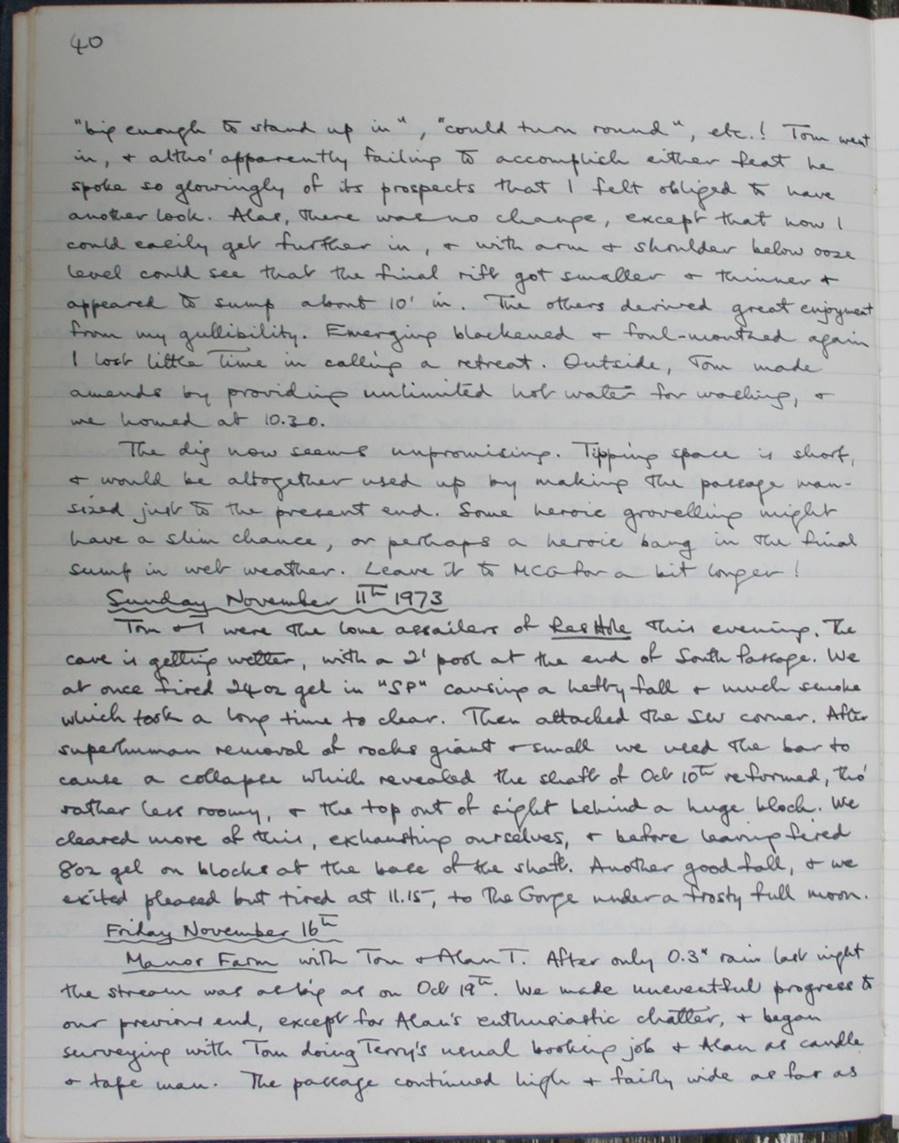 40
"big enough to stand up in", "could turn round", etc.! Tom went
in, & altho' apparently failing to accomplish either feat he
spoke so glowingly of its prospects that I felt obliged to have
another look. Alas, there was no change, except that now I
could easily get further in, & with arm & shoulder below ooze
level could see that the final rift got smaller & thinner &
appeared to sump about 10' in. The others derived great enjoyment
from my gullibility. Emerging blackened & foul-mouthed again
I lost little time in calling a retreat. Outside, Tom made
amends by providing unlimited hot water for washing, &
we homed at 10.30.
The dig now seems unpromising. Tipping space is short,
& would be altogether used up by making the passage man-
sized just to the present end. Some heroic grovelling might
have a slim chance, or perhaps a heroic bang in the final
sump in wet weather. Leave it to MCG for a bit longer!
Sunday November 11th 1973
Tom & I were the lone assailers of Res Hole this evening. The
cave is getting wetter, with a 2' pool at the end of South Passage. We
at once fired 24oz gel in "SP" causing a hefty fall & much smoke
which took a long time to clear. Then attacked the SW corner. After
superhuman removal of rocks giant & small we used the bar to
cause a collapse which revealed the shaft of Oct 10th reformed, tho'
rather less roomy, & the top out of sight behind a huge block. We
cleared more of this, exhausting ourselves, & before leaving fired
8oz gel on blocks at the base of the shaft. Another good fall, & we
exited pleased but tired at 11.15, to the Gorge under a frosty full moon.
Friday November 16th
Manor Farm with Tom & Alan T. After only 0.3" rain last night
the stream was as big as on Oct 19th. We made uneventful progress to
our previous end, except for Alan's enthusiastic chatter, & began
surveying with Tom doing Terry's usual booking job & Alan as candle
& tape man. The passage continued high & fairly wide as far as